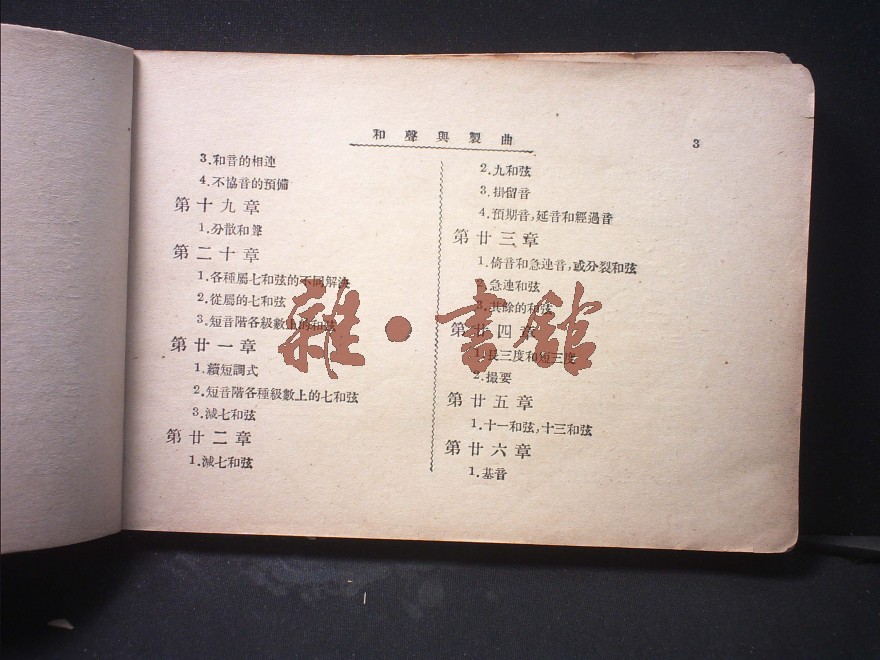 和聲與製曲
3
3.和音的相連
4.不協音的預備
第十九章
1.分散和聲
第二十章
1.各種屬七和弦的不同解決
2.從屬的七和弦
3.短音階各級數上的和弦
第廿一章
1.續短調式
2.短音階各種級數上的七和弦
3.減七和弦
第廿二章
1.減七和弦
2.九和弦
3.掛留音
4.預期音,延音和經過音
第廿三章
1.倚音和急連音,或分裂和弦
2.急連和弦
3.其餘的和弦
第廿四章
1.長三度和短三度
2.撮要
第廿五章
1.十一和弦,十三和弦
第廿六章
1.基音
雜·書館